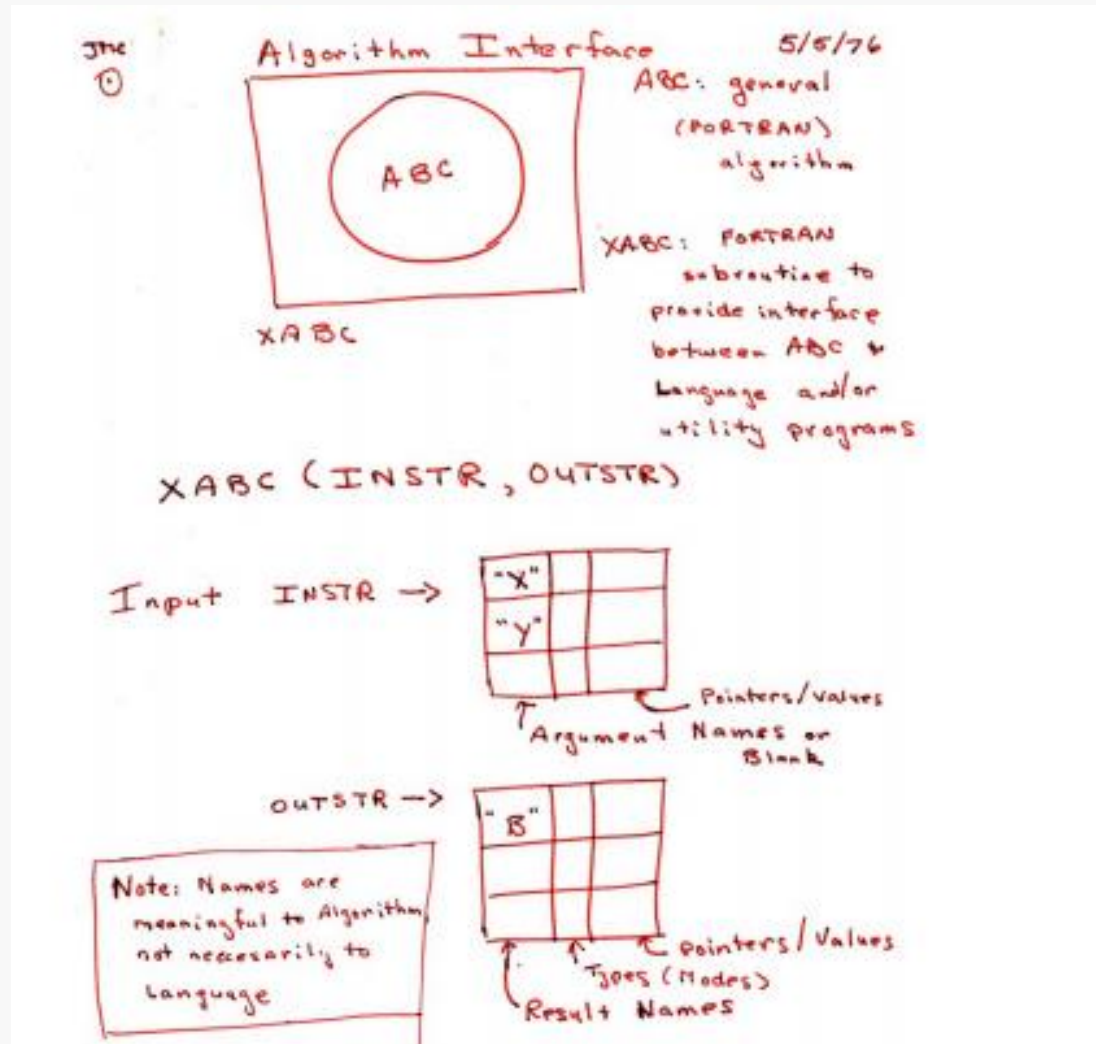 JMC Algorithm Interface 5/5/76
ABC: general
(FORTRAN)
algorithm
ABC
XABC: FORTRAN
subroutine to
provide interface
between ABC &
Language and/or
utility programs
XABC
XABC (INSTR, OUTSTR)
Input INSTR →
"X"
"Y"
Pointers/Values
Argument Names or
Blank
OUTSTR →
"B"
Note: Names are
meaningful to Algorithm,
not neccesarily to
Language
Pointers/Values
Types (Modes)
Result Names